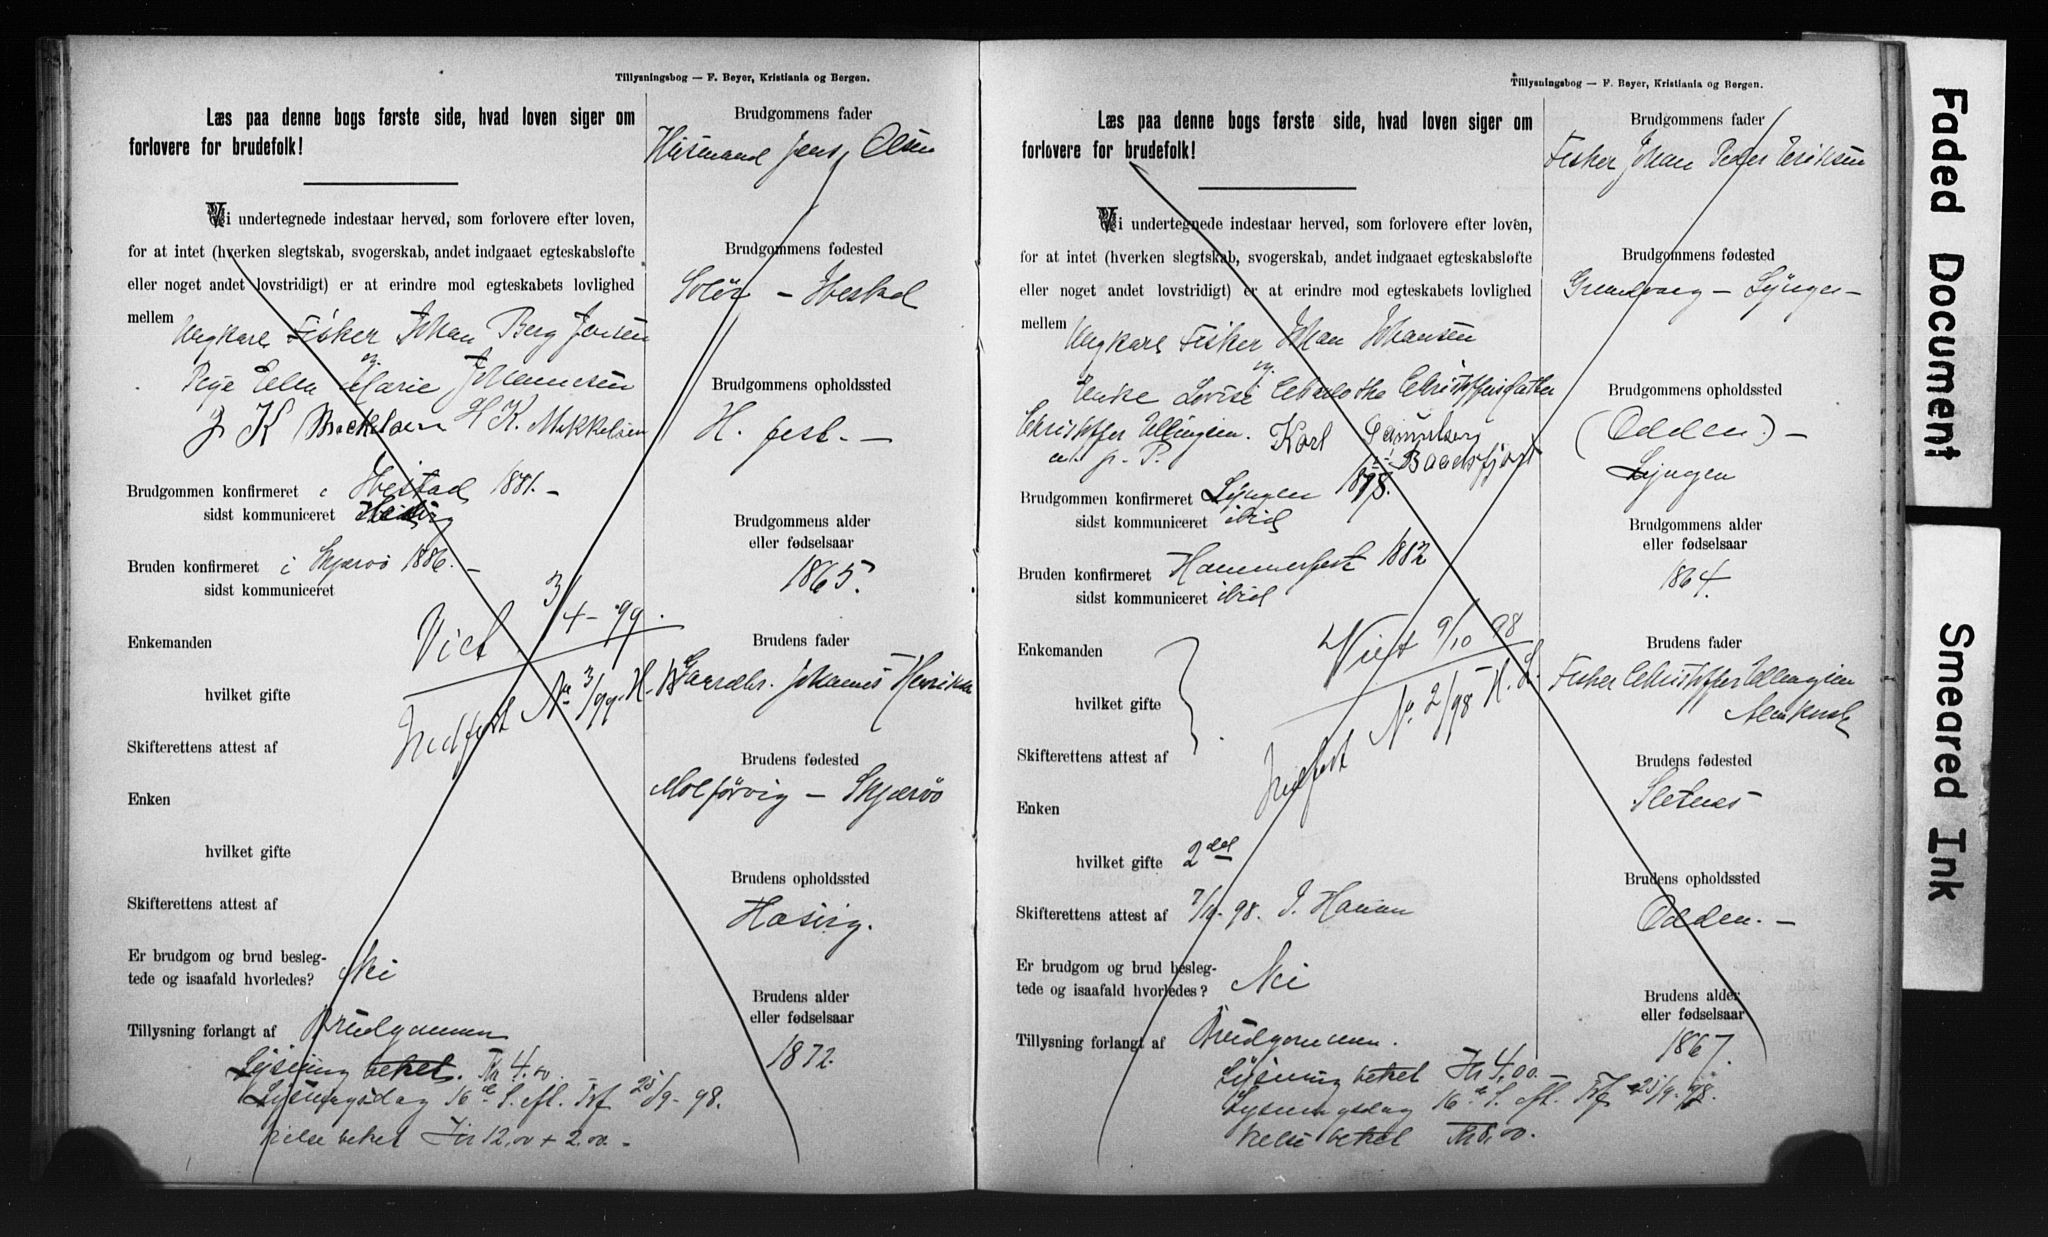 Tillysningsbog — F. Beyer, Kristiania og Bergen.
Læs paa denne bogs første side, hvad loven siger om
forlovere for brudefolk!
Vi undertegnede indestaar herved, som forlovere efter loven,
for at intet (hverken slegtskab, svogerskab, andet indgaaet egteskabsløfte
eller noget andet lovstridigt) er at erindre mod egteskabets lovlighed
mellem
Ungkarl Fisker Johan Berg Jensen
og
Pige Ellen Marie Johannesen
J K Mockelsen H K Mikkelsen
Brudgommen konfirmeret i Ibestad 1881. —
sidst kommuniceret
Bruden konfirmeret i Skjervö 1886. —
sidst kommuniceret
Viet 3/4 - 99.
Enkemanden
hvilket gifte
Indført No 3/99. H.
Skifterettens attest af
Enken
hvilket gifte
Skifterettens attest af
Er brudgom og brud besleg-
tede og isaafald hvorledes? Nei
Tillysning forlangt af Brudgommen
Lysning betalt. Kr 4.00
Lysningsdag 16de S. eft. Tref 25/9 - 98.
vielse betalt Kr 12,00 + 2,00 -
Brudgommens fader
Husmand Jens Olsen
Brudgommens fødested
Brudgommens opholdssted
H. fest. —
Brudgommens alder
eller fødselsaar
1865.
Brudens fader
Gaardbr. Johannes Henriksen
Brudens fødested
Molførvig — Skjervö
Brudens opholdssted
Hasvig.
Brudens alder
eller fødselsaar
1872.
Tillysningsbog — F. Beyer, Kristiania og Bergen.
Læs paa denne bogs første side, hvad loven siger om
forlovere for brudefolk!
Vi undertegnede indestaar herved, som forlovere efter loven,
for at intet (hverken slegtskab, svogerskab, andet indgaaet egteskabsløfte
eller noget andet lovstridigt) er at erindre mod egteskabets lovlighed
mellem
Ungkarl Fisker Johan Johansen
og
Enke Lovise Charlotte Christoffersdatter
Christoffer Ellingsen. Karl
m. p. P. Baadsfjort
Brudgommen konfirmeret Lyngen
sidst kommuniceret ibid
Bruden konfirmeret Hammerfest 1882
sidst kommuniceret ibid
Viet 9/10 98
Enkemanden
hvilket gifte
No. 2/98 H.
Skifterettens attest af
Indført
Enken
hvilket gifte 2det
Skifterettens attest af 98. J. Hansen
Er brudgom og brud besleg-
tede og isaafald hvorledes? Nei
Tillysning forlangt af Brudgommen.
Lysning betalt Kr 4,00. —
Lysningsdag 16de S. eft. Tref 25/9 - 98.
Vielse betalt Kr 8,00.
Brudgommens fader
Fisker Johan Peder Eriksen
Brudgommens fødested
Grundvaag — Lyngen —
Brudgommens opholdssted
(Odden) —
Lyngen
Brudgommens alder
eller fødselsaar
1864.
Brudens fader
Fisker Christoffer Ellingsen
Brudens fødested
Sletnes
Brudens opholdssted
Odden. —
Brudens alder
eller fødselsaar
1867.
Faded Document
Smeared Ink